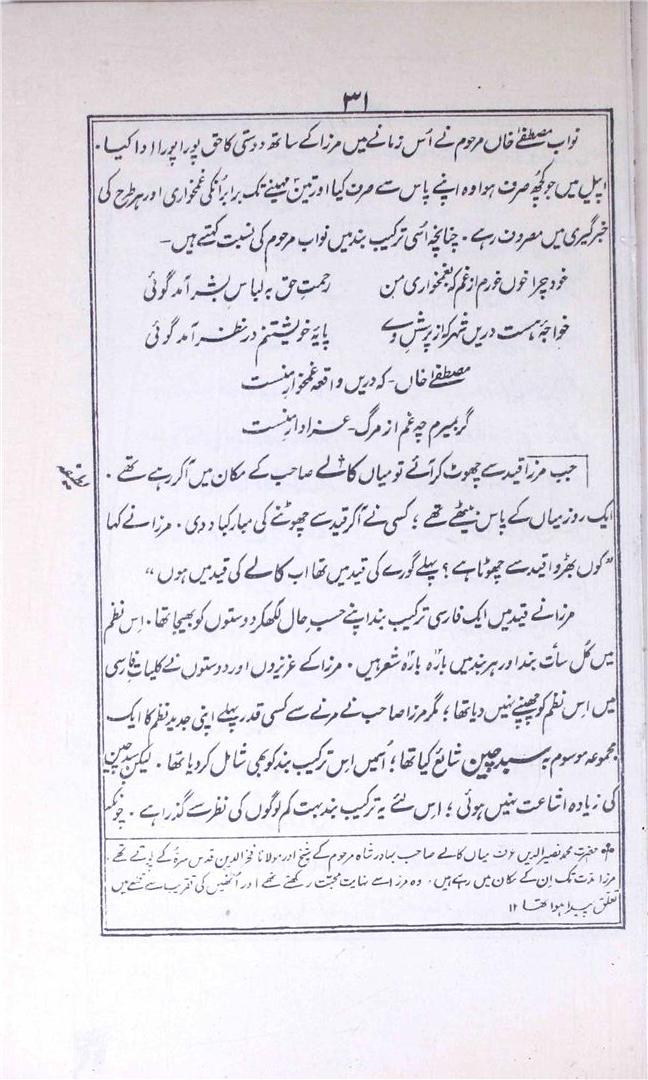 ۳۱
نواب مصطفےٰ خاں مرحوم نے اُس زمانے میں مرزا کے ساتھ دوستی کا حق پورا پورا ادا کیا۔
اپیل میں جو کچھ صرف ہوا وہ اپنے پاس سے صرف کیا اور تین مہینے تک برابر اُنکی غمخواری اور ہر طرح کی
خبرگیری میں مصروف رہے۔ چنانچہ اُسی ترکیب بند میں نواب مرحوم کی نسبت کہتے ہیں۔
خود چرا خوں خورم از غم کہ بغمخواری من رحمتِ حق بہ لباسِ بشر آمد گوئی
خواجۂ ہست دریں شہر کہ از پرسشِ وے پایۂ خویشتنم در نظر آمد گوئی
مصطفےٰ خاں۔ کہ دریں واقعہ غمخوارِ منست
گر بمیرم چہ غم از مرگ۔ عزادارِ منست
جب مرزا قید سے چھوٹ کر آئے تو میاں کالے صاحب کے مکان میں آکر رہے تھے۔
لطیفہ
ایک روز میاں کے پاس بیٹھے تھے؛ کسی نے آکر قید سے چھوٹنے کی مبارکباد دی۔ مرزا نے کہا
”کون بھڑوا قید سے چھوٹا ہے؟ پہلے گورے کی قید میں تھا اب کالے کی قید میں ہوں“
مرزا نے قید میں ایک فارسی ترکیب بند اپنے حسب حال لکھکر دوستوں کو بھیجا تھا۔ اس نظم
میں کُل سات بند اور ہر بند میں بارہ بارہ شعر ہیں۔ مرزا کے عزیزوں اور دوستوں نے کلیات فارسی
میں اس نظم کو چھپنے نہیں دیا تھا؛ مگر مرزا صاحب نے مرنے سے کسی قدر پہلے اپنی جدید نظم کا ایک
مجموعہ موسوم بہ سبد چین شائع کیا تھا؛ اُسمیں اس ترکیب بند کو بھی شامل کر دیا تھا۔ لیکن سبد چین
کی زیادہ اشاعت نہیں ہوئی؛ اس لئے یہ ترکیب بند بہت کم لوگوں کی نظر سے گذرا ہے۔ چونکہ
حضرت محمد نصیر الدین عرف میاں کالے صاحب بہادر شاہ مرحوم کے شیخ اور مولانا فخر الدین قدس سرہٗ کے پوتے تھے۔
مرزا مدت تک اِن کے مکان میں رہے ہیں۔ وہ مرزا سے نہایت محبت رکھتے تھے اور اُنھیں کی تقریب سے قلعے میں
تعلق پیدا ہوا تھا ۱۲